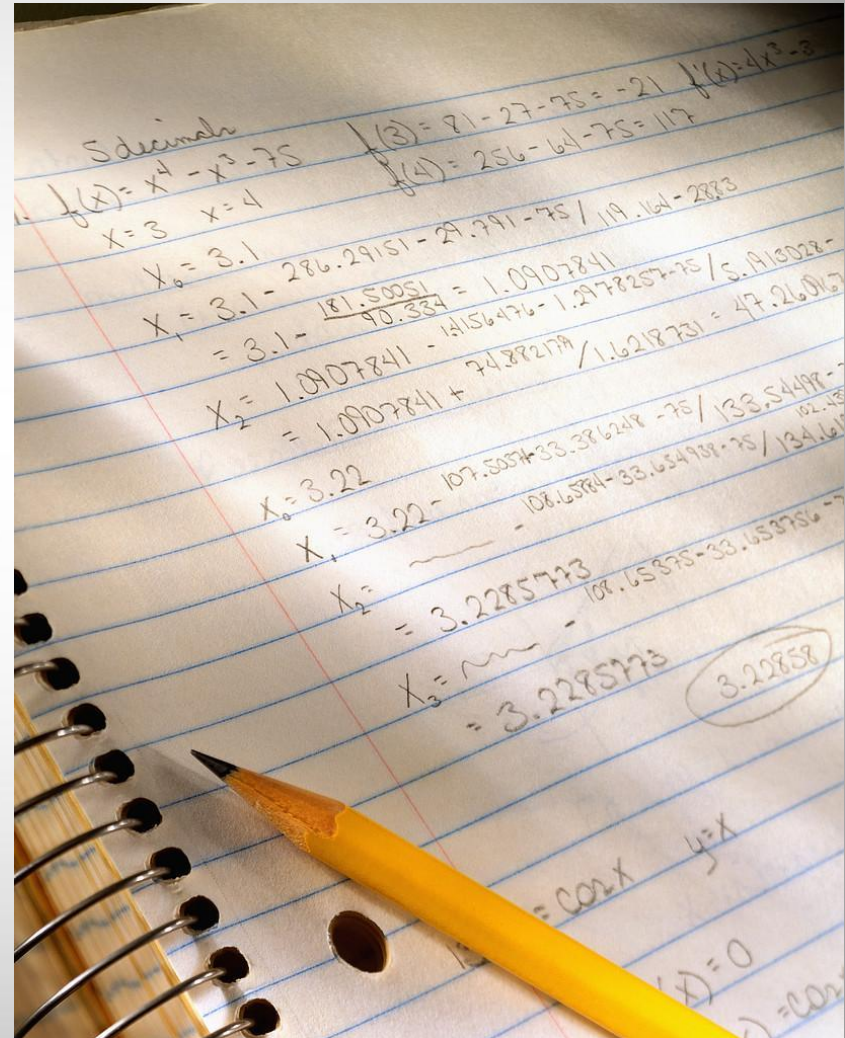 5 decimals
f(x) = x⁴ - x³ - 75
f(3) = 81 - 27 - 75 = -21 f'(x) = 4x³ - 3
x = 3 x = 4
f(4) = 256 - 64 - 75 = 117
X₀ = 3.1
X₁ = 3.1 - 286.29151 - 29.791 - 75 / 119.164 - 28.83
= 3.1 - 181.50051 / 90.334 = 1.0907841
X₂ = 1.0907841 - 1.4156476 - 1.2978257 - 75 / 5.1913028 -
= 1.0907841 + 74.882179 / 1.6218731 = 47.260967
X₀ = 3.22
X₁ = 3.22 - 107.5037 - 33.386248 - 75 / 133.54498 -
X₂ = - 108.6584 - 33.654938 - 75 / 134.61
= 3.2285773
X₃ = - 108.65375 - 33.653756 -
= 3.2285773 3.22858
= cos x y = x
(x) = 0
) = cos